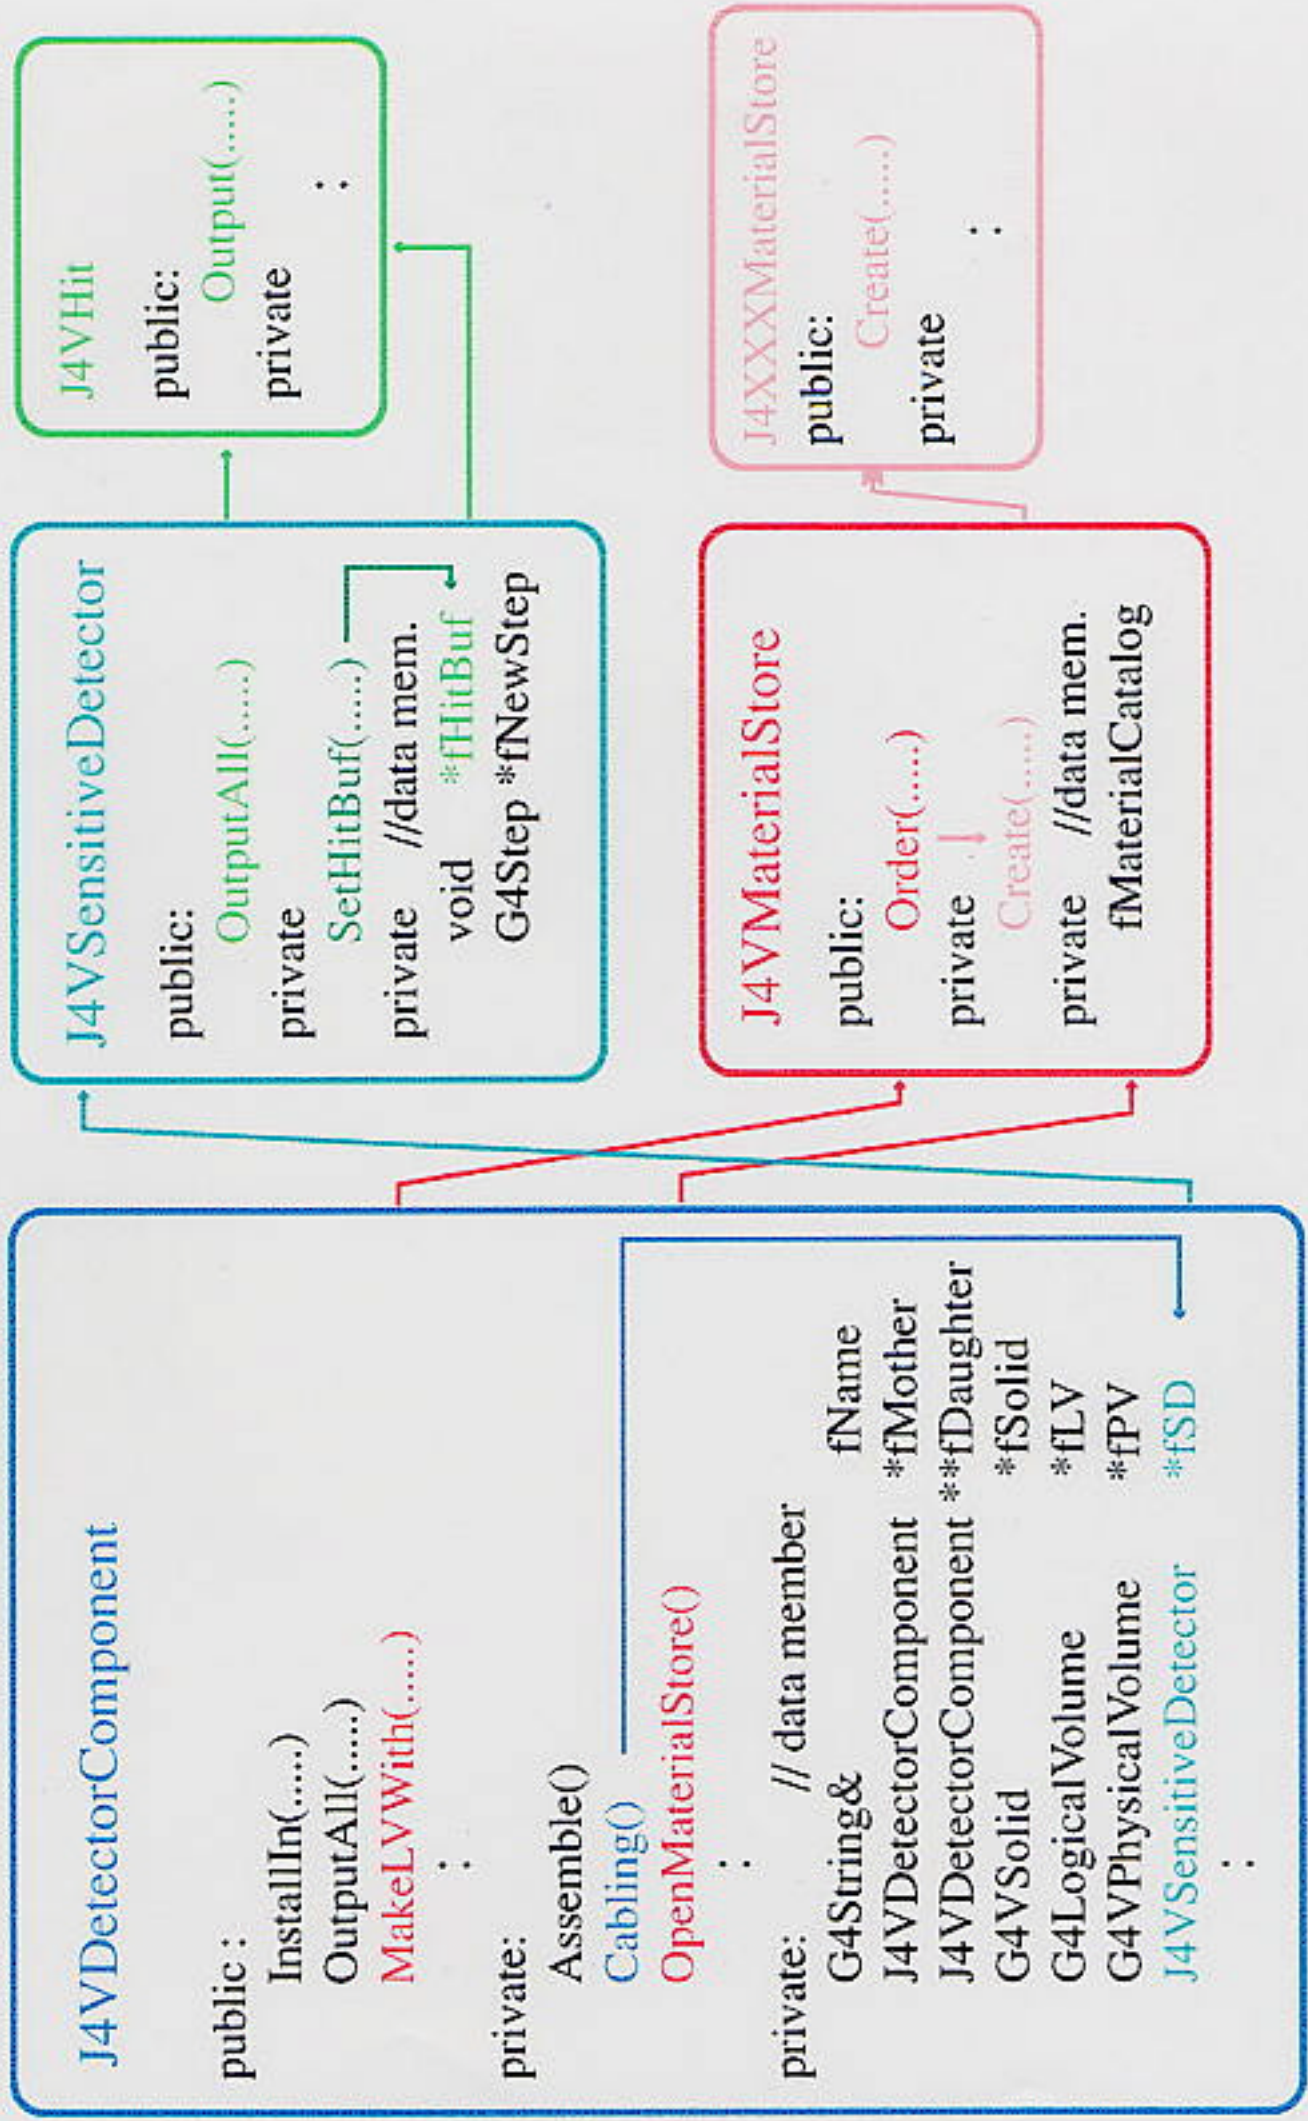 J4VDetectorComponent
public :
InstallIn(.....)
OutputAll(.....)
MakeLVWith(.....)
:
private:
Assemble()
Cabling()
OpenMaterialStore()
:
private: // data member
G4String& fName
J4VDetectorComponent *fMother
J4VDetectorComponent **fDaughter
G4VSolid *fSolid
G4LogicalVolume *fLV
G4VPhysicalVolume *fPV
J4VSensitiveDetector *fSD
:
J4VSensitiveDetector
public:
OutputAll(.....)
private
SetHitBuf(.....)
private //data mem.
void *fHitBuf
G4Step *fNewStep
J4VHit
public:
Output(.....)
private
:
J4VMaterialStore
public:
Order(.....)
private
Create(.....)
private //data mem.
fMaterialCatalog
J4XXXMaterialStore
public:
Create(.....)
private
: